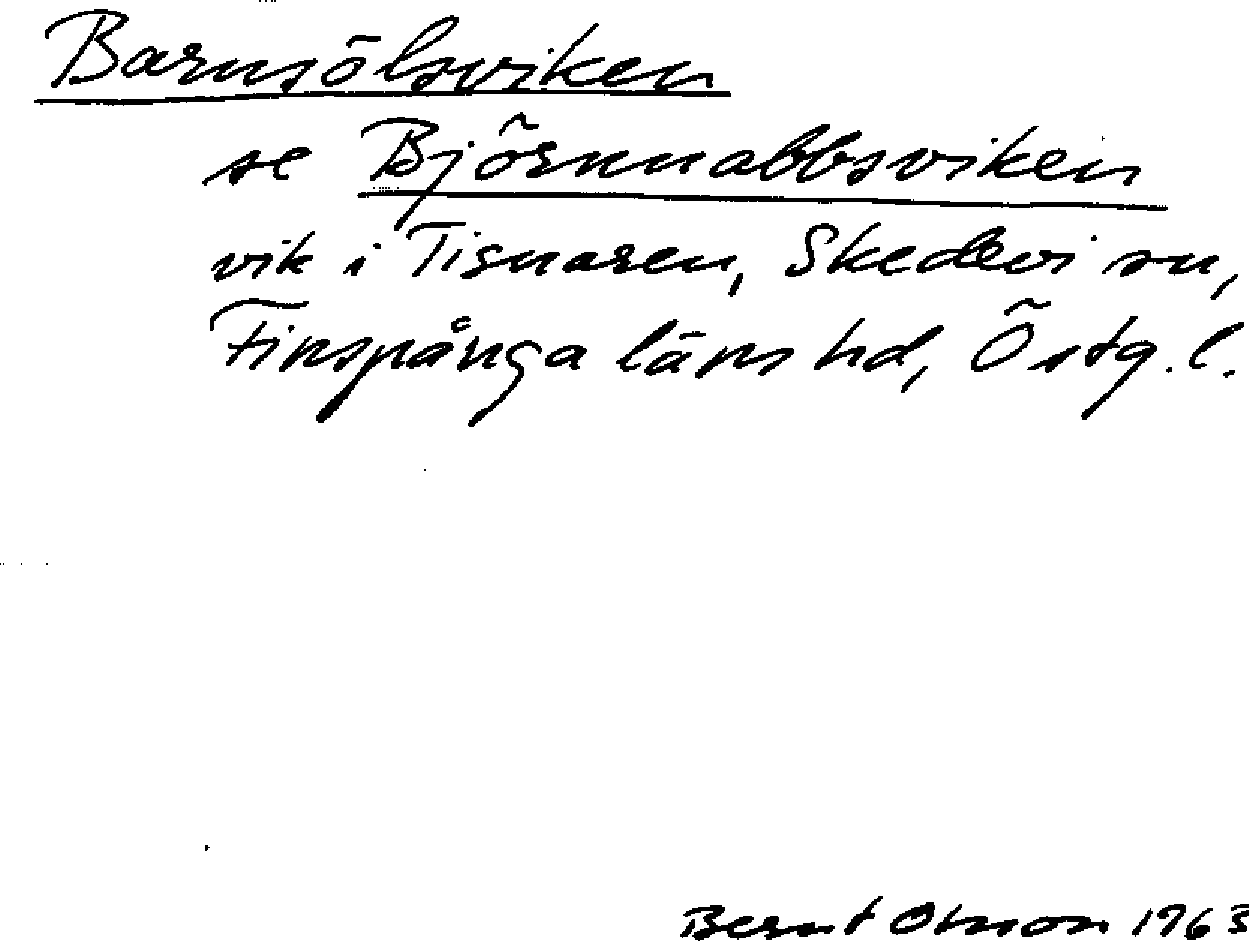 Barnsölsviken
se Björnnabbsviken
vik i Tisnaren, Skedevi sn,
Finspånga läns hd, Östg. l.
Bernt Olsson 1963